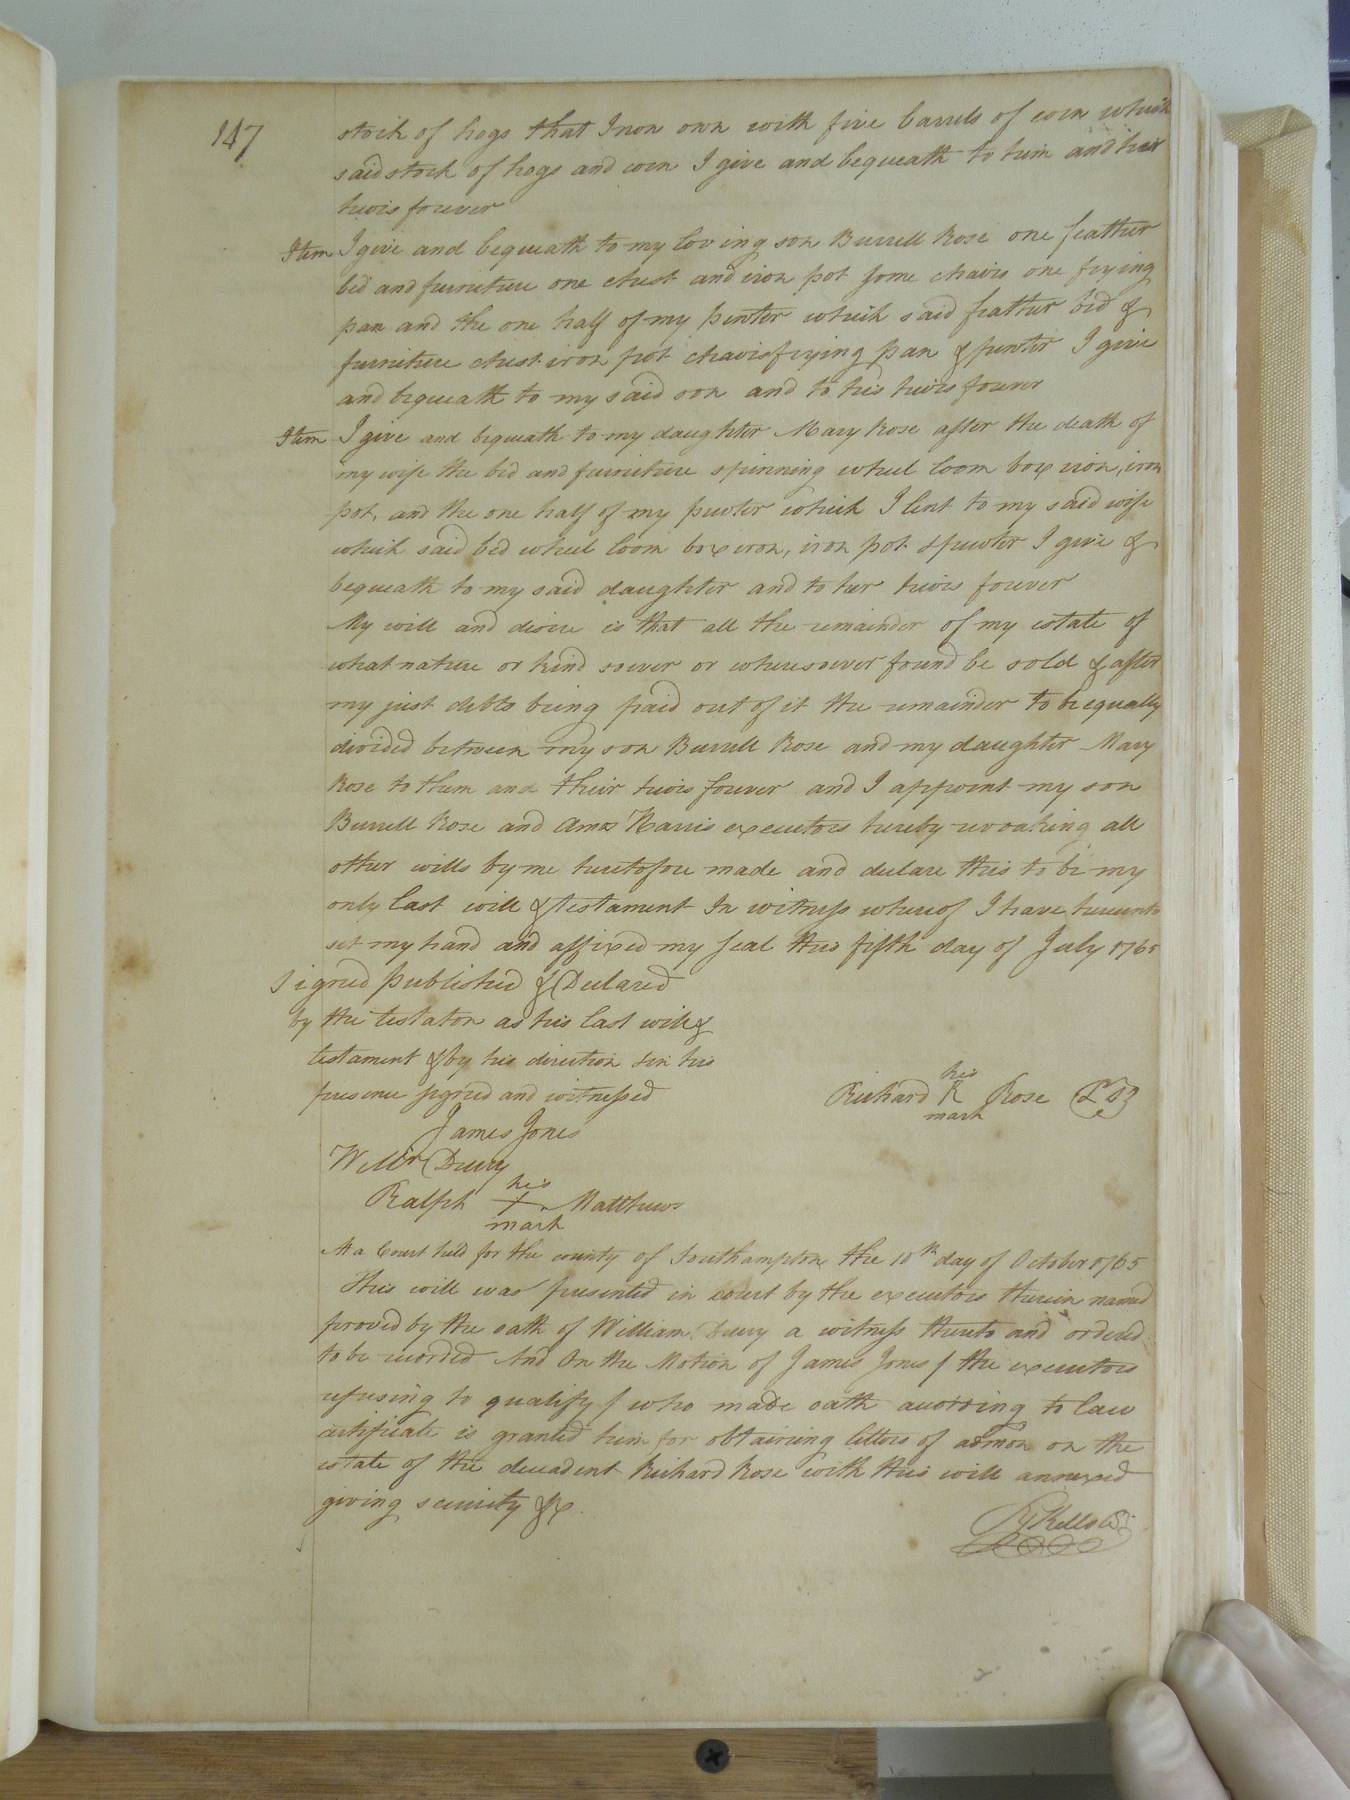 147
stock of hogs that I now own with five barrels of corn which
said stock of hogs and corn I give and bequeath to him and heir
heirs forever
Item I give and bequeath to my loving son Burrell Rose one feather
bed and furniture one chest and iron pot some chairs one frying
pan and the one half of my pewter which said feather bed &
furniture chest iron pot chairs frying pan & pewter I give
and bequeath to my said son and to his heirs forever
Item I give and bequeath to my daughter Mary Rose after the death of
my wife the bed and furniture spinning wheel loom box iron, iron
pot, and the one half of my pewter which I lent to my said wife
which said bed wheel loom box iron, iron pot & pewter I give &
bequeath to my said daughter and to her heirs forever
My will and desire is that all the remainder of my estate of
what nature or kind soever or wheresoever found be sold & after
my just debts being paid out of it the remainder to be equally
divided between my son Burrell Rose and my daughter Mary
Rose to them and their heirs forever and I appoint my son
Burrell Rose and Amos Harris executors hereby revoaking all
other wills by me heretofore made and declare this to be my
only last will & testament In witness whereof I have hereunto
set my hand and affixed my seal this fifth day of July 1765
Signed published & Declared
by the testator as his last will &
testament & by his direction & in his
presence signed and witnessed
his
Richard R Rose LS
mark
James Jones
Willm Drury
his
Ralph + Matthews
mark
At a Court held for the county of Southampton the 10th day of October 1765
This will was presented in court by the executors therein named
proved by the oath of William Drury a witness thereto and ordered
to be recorded And On the Motion of James Jones / the executors
refusing to qualify / who made oath according to law
certificate is granted him for obtaining letters of admon on the
estate of the decedent Richard Rose with this will annexed
giving security &c.
Rd Kello CSr